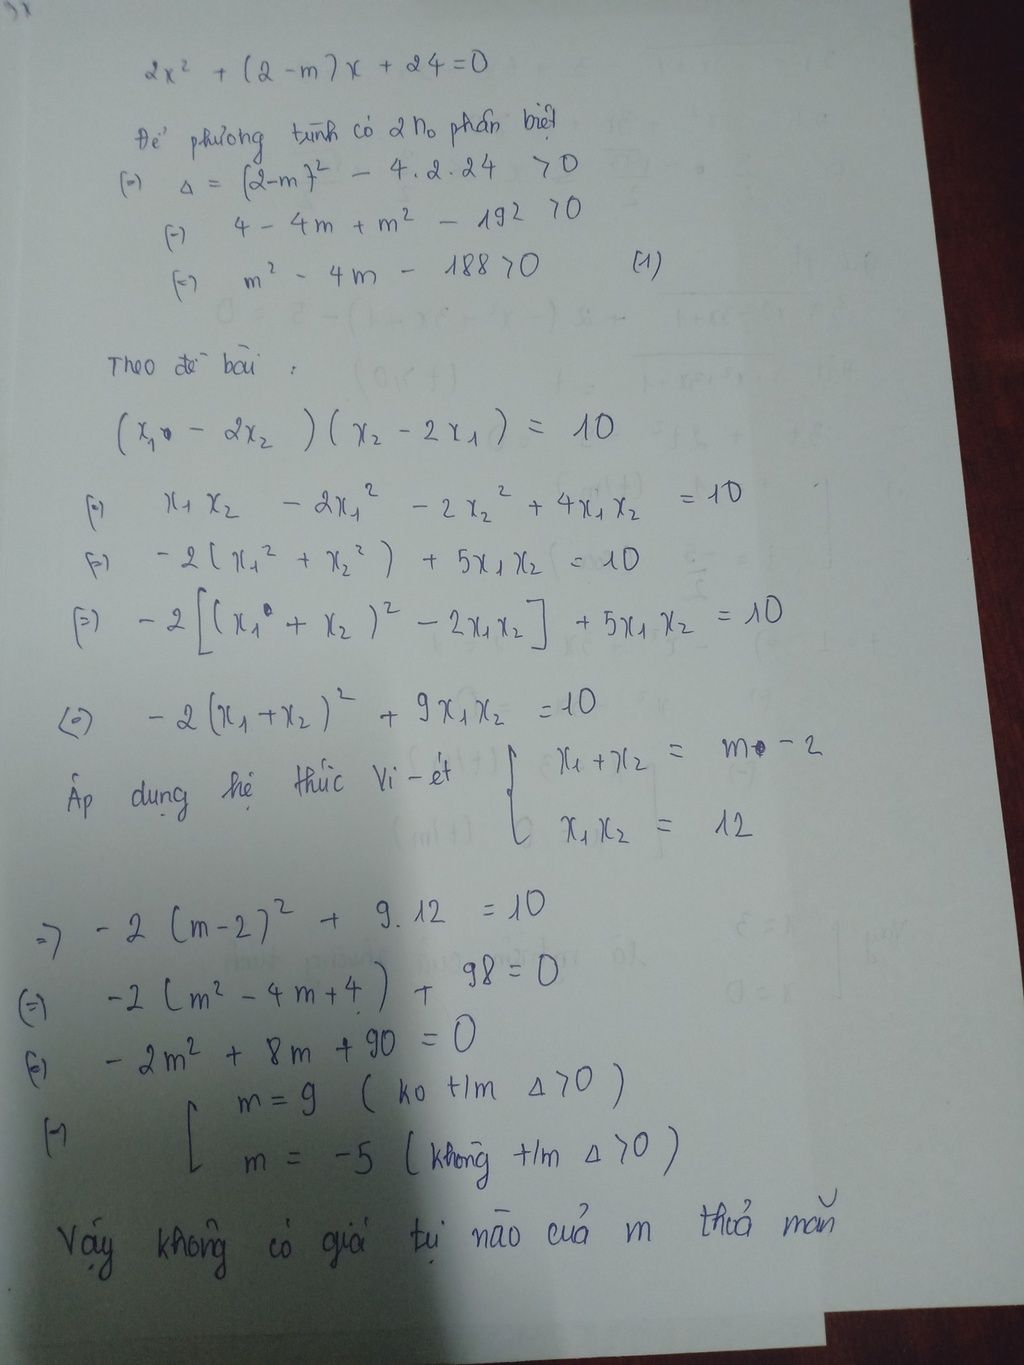 2x² + (2-m)x + 24 = 0
Để phương trình có 2 n₀ phân biệt
(=) Δ = (2-m)² - 4.2.24 > 0
(=) 4 - 4m + m² - 192 > 0
(=) m² - 4m - 188 > 0 (1)
Theo đề bài :
(x₁ - 2x₂)(x₂ - 2x₁) = 10
(=) x₁x₂ - 2x₁² - 2x₂² + 4x₁x₂ = 10
(=) -2(x₁² + x₂²) + 5x₁x₂ = 10
(=) -2[(x₁ + x₂)² - 2x₁x₂] + 5x₁x₂ = 10
(=) -2(x₁+x₂)² + 9x₁x₂ = 10
Áp dụng hệ thức Vi-ét { x₁+x₂ = m - 2
x₁x₂ = 12
=> -2(m-2)² + 9.12 = 10
(=) -2(m² - 4m + 4) + 98 = 0
(=) -2m² + 8m + 90 = 0
(=) [ m = 9 (ko t/m Δ > 0)
m = -5 (không t/m Δ > 0)
Vậy không có giá trị nào của m thoả mãn